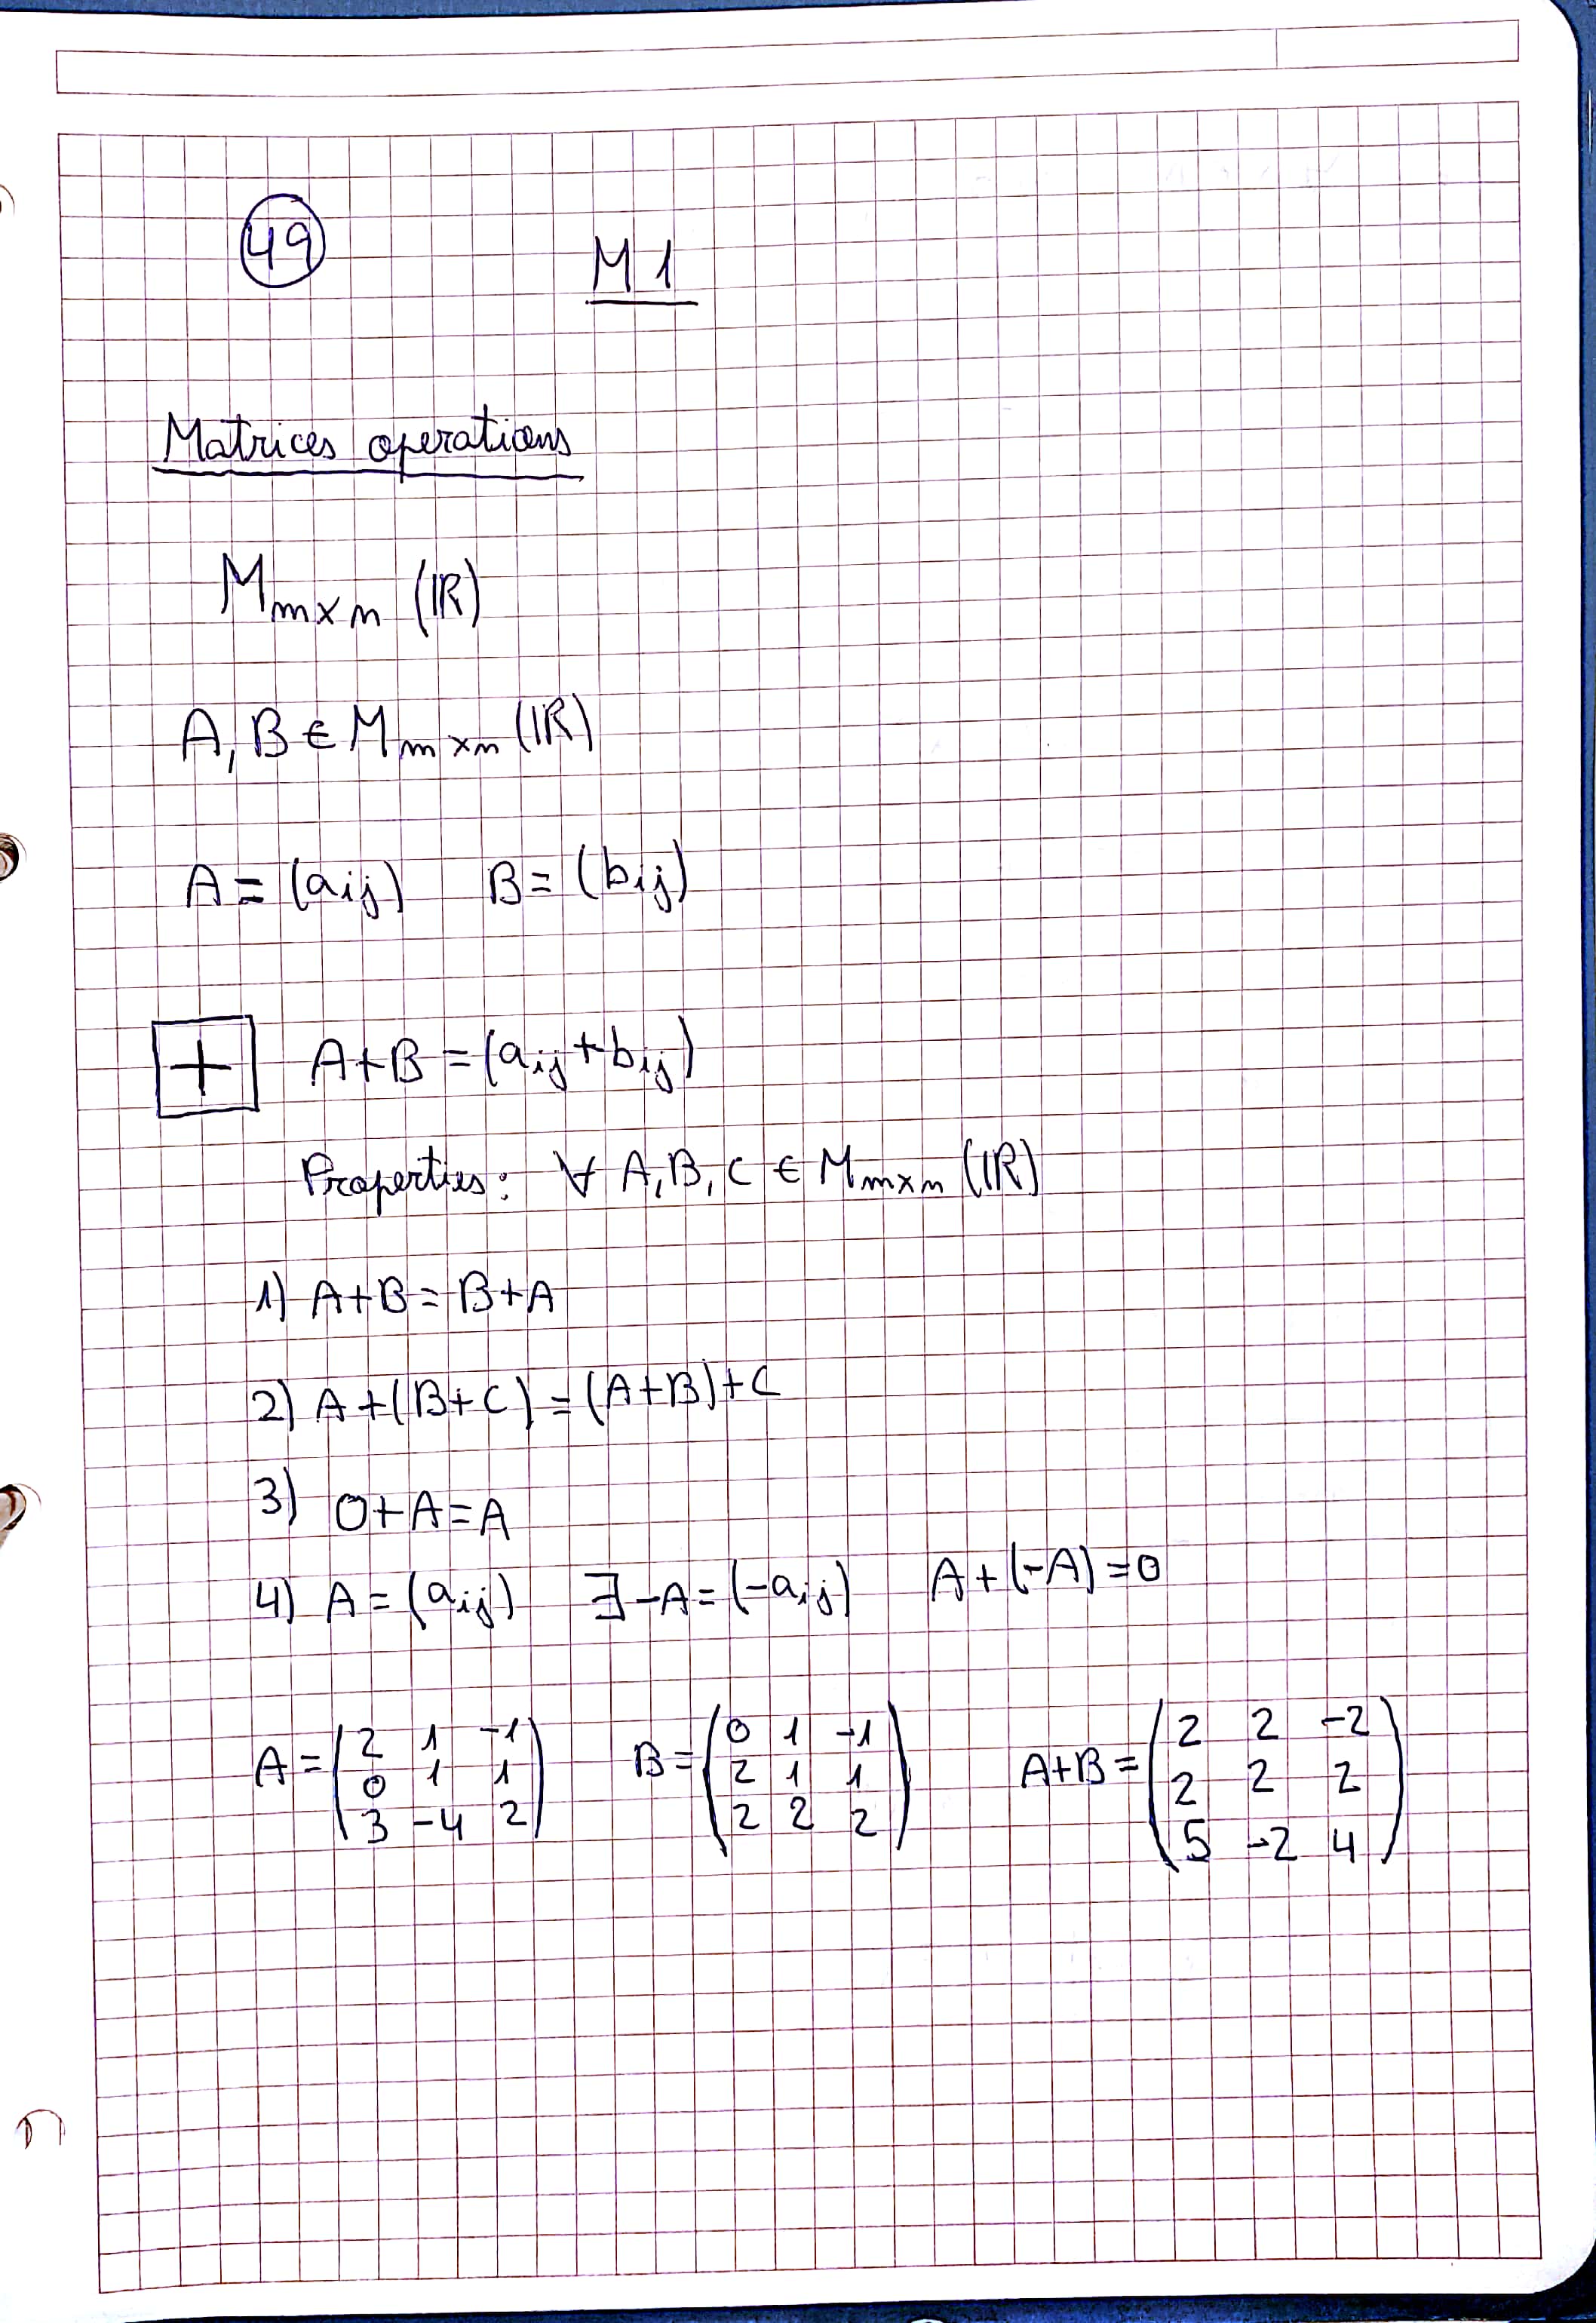 49 M1
Matrices operations
M m×n (ℝ)
A, B ∈ M m×n (ℝ)
A = (aij) B = (bij)
+ A+B = (aij+bij)
Properties: ∀ A, B, C ∈ M m×n (ℝ)
1) A+B = B+A
2) A+(B+C) = (A+B)+C
3) 0+A=A
4) A = (aij) ∃ -A = (-aij) A+(-A)=0
A = (2 1 -1 B = (0 1 -1 A+B = (2 2 -2
0 1 1 2 1 1 2 2 2
3 -4 2) 2 2 2) 5 -2 4)